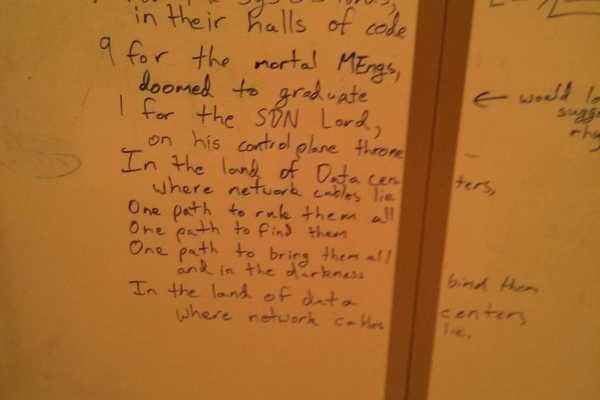 in their halls of code
9 for the mortal MEngs,
doomed to graduate
1 for the SDN Lord,
on his control plane throne
In the land of Data centers,
where network cables lie
One path to rule them all
One path to find them
One path to bring them all
and in the darkness bind them
In the land of data centers
where network cables lie.
← would